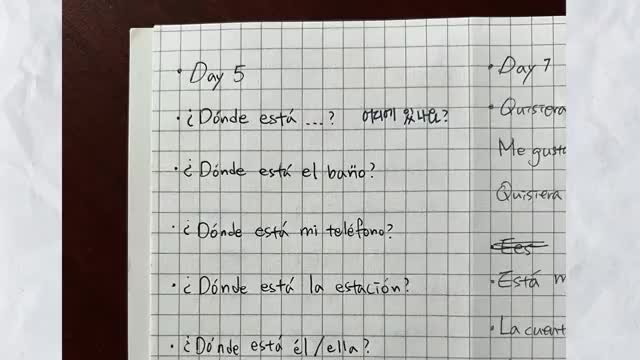 · Day 5
· ¿Dónde está ...? 어디에 있나요?
· ¿Dónde está el baño?
· ¿Dónde está mi teléfono?
· ¿Dónde está la estación?
· ¿Dónde está él/ella?
· Day 7
· Quisiera
Me gusta
Quisiera
Ees
· Está m
· La cuent